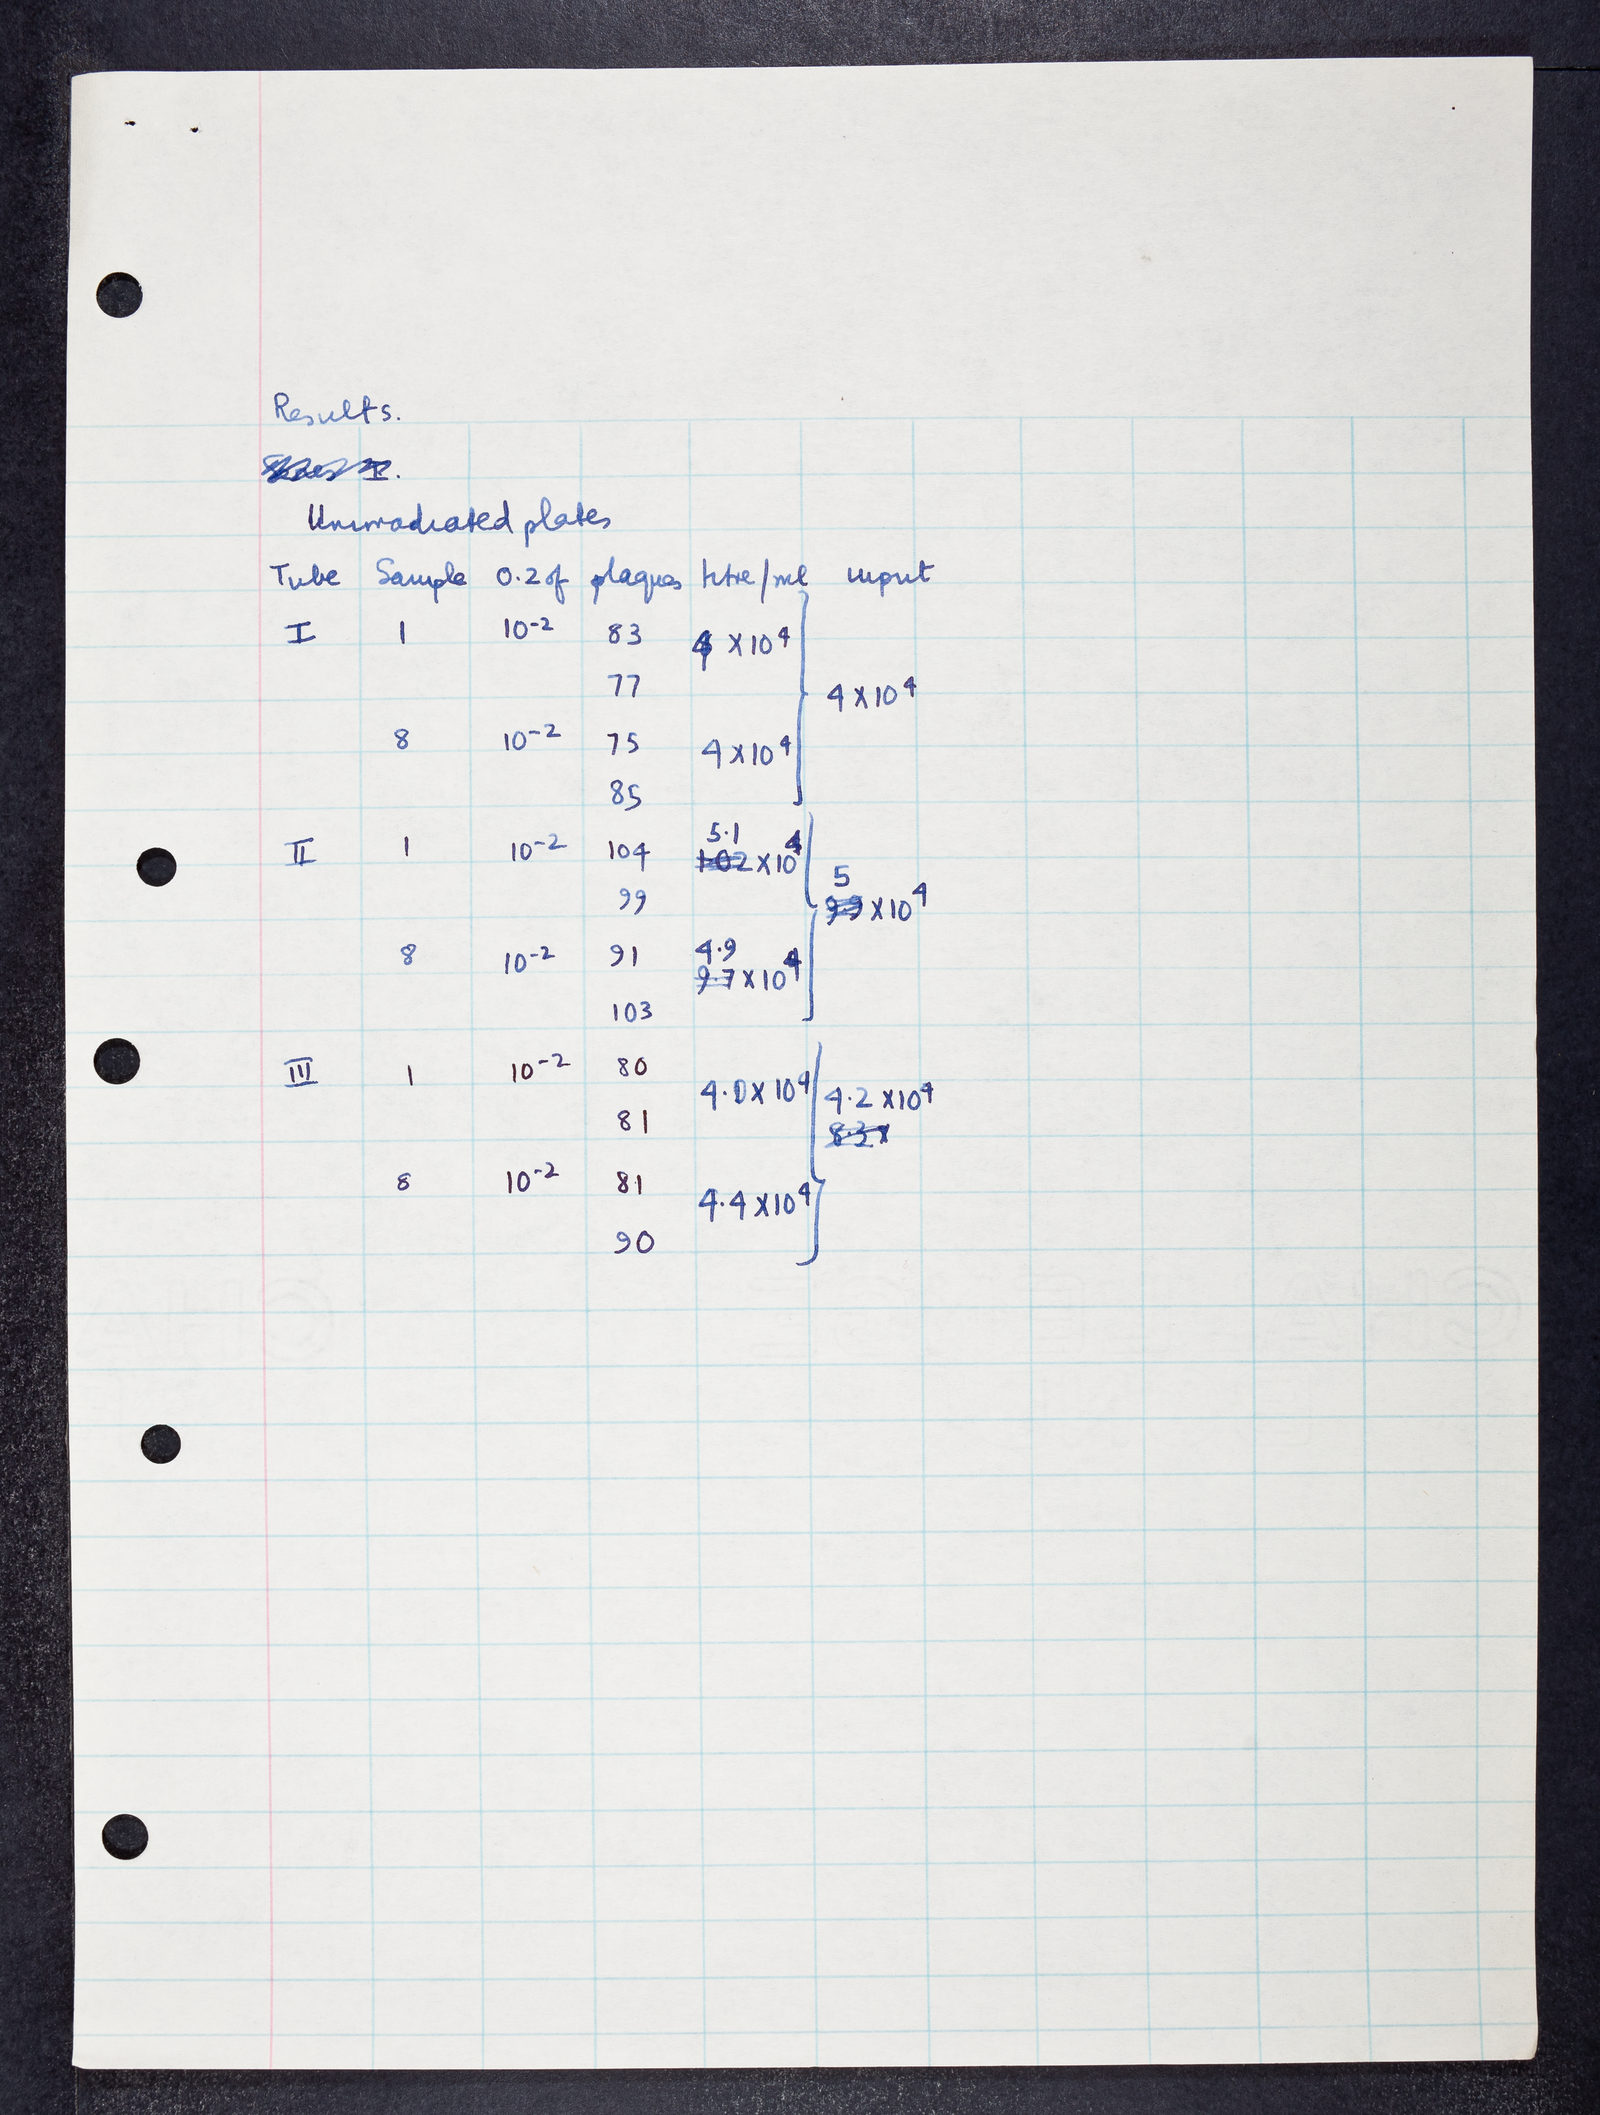 Results.
I.
Unirradiated plates
Tube Sample 0.2 of plaques titre/ml input
I 1 10⁻² 83 4 × 10⁴
77 4 × 10⁴
8 10⁻² 75 4 × 10⁴
85
5.1
II 1 10⁻² 104 102 × 10⁴
5
99 99 × 10⁴
4.9
8 10⁻² 91 9.7 × 10⁴
103
III 1 10⁻² 80 4.0 × 10⁴ 4.2 × 10⁴
81 8.3 ×
8 10⁻² 81 4.4 × 10⁴
90